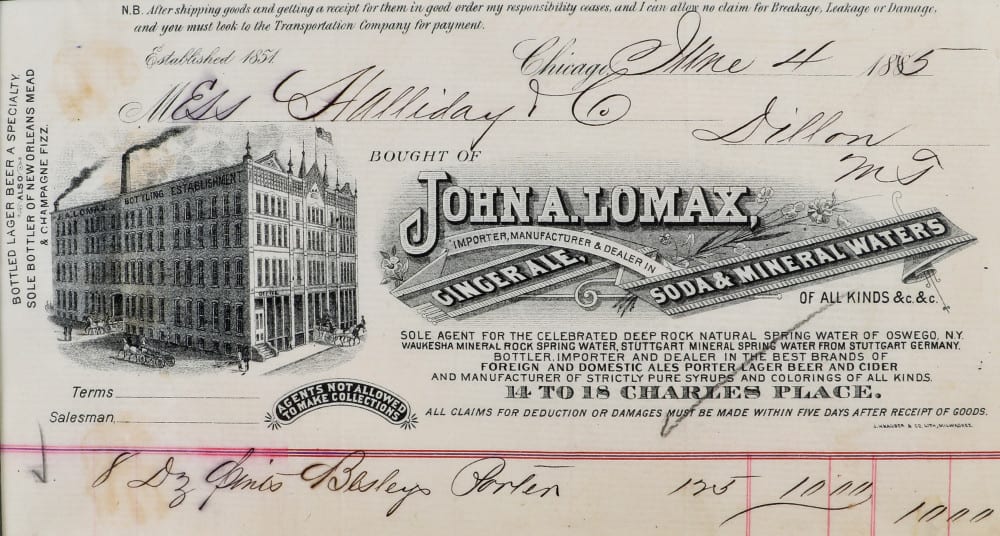 N.B. After shipping goods and getting a receipt for them in good order my responsibility ceases, and I can allow no claim for Breakage, Leakage or Damage,
and you must look to the Transportation Company for payment.
Established 1851.
Chicago, June 4 1885
Mess Halliday & Co
Dillon
M T
BOTTLED LAGER BEER A SPECIALTY.
ALSO
SOLE BOTTLER OF NEW ORLEANS MEAD
& CHAMPAGNE FIZZ.
J.A. LOMAX BOTTLING ESTABLISHMENT
OFFICE
BOUGHT OF
JOHN A. LOMAX,
IMPORTER, MANUFACTURER & DEALER IN
GINGER ALE,
SODA & MINERAL WATERS
OF ALL KINDS &c. &c.
SOLE AGENT FOR THE CELEBRATED DEEP ROCK NATURAL SPRING WATER OF OSWEGO, N.Y.
WAUKESHA MINERAL ROCK SPRING WATER, STUTTGART MINERAL SPRING WATER FROM STUTTGART GERMANY.
BOTTLER, IMPORTER AND DEALER IN THE BEST BRANDS OF
FOREIGN AND DOMESTIC ALES PORTER LAGER BEER AND CIDER
AND MANUFACTURER OF STRICTLY PURE SYRUPS AND COLORINGS OF ALL KINDS.
14 TO 18 CHARLES PLACE.
ALL CLAIMS FOR DEDUCTION OR DAMAGES MUST BE MADE WITHIN FIVE DAYS AFTER RECEIPT OF GOODS.
Terms
Salesman,
AGENTS NOT ALLOWED
TO MAKE COLLECTIONS
8 Dz Besleys Porter 125 10 00
10 00